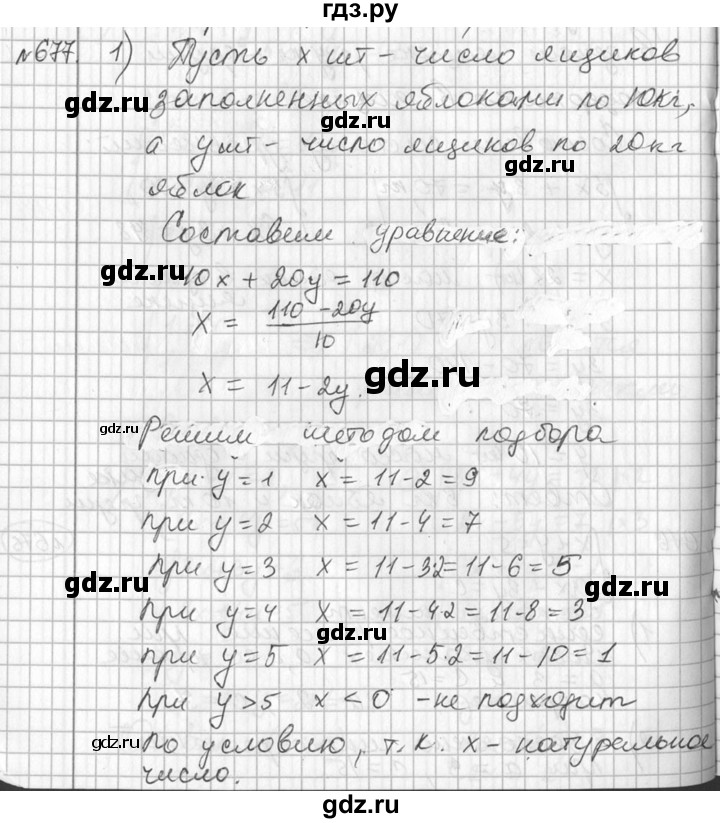 гдз.ру
№677. 1) Пусть x шт – число ящиков
gdz.ru заполненных яблоками по 10кг,
gdz.ru
а y шт – число ящиков по 20кг
gdz.ru
яблок
Составим уравнение:
gdz.ru
10x + 20y = 110
x = (110 - 20y)/10
x = 11 - 2y.
gdz.ru
gdz.ru Решим методом подбора
при y = 1 x = 11 - 2 = 9
при y = 2 x = 11 - 4 = 7
при y = 3 x = 11 - 3·2 = 11 - 6 = 5
gdz.ru gdz.ru
при y = 4 x = 11 - 4·2 = 11 - 8 = 3
gdz.ru
при y = 5 x = 11 - 5·2 = 11 - 10 = 1
при y > 5 x < 0 - не подходит
gdz.ru
по условию, т.к. x – натуральное
число.
gdz.ru
gdz.ru